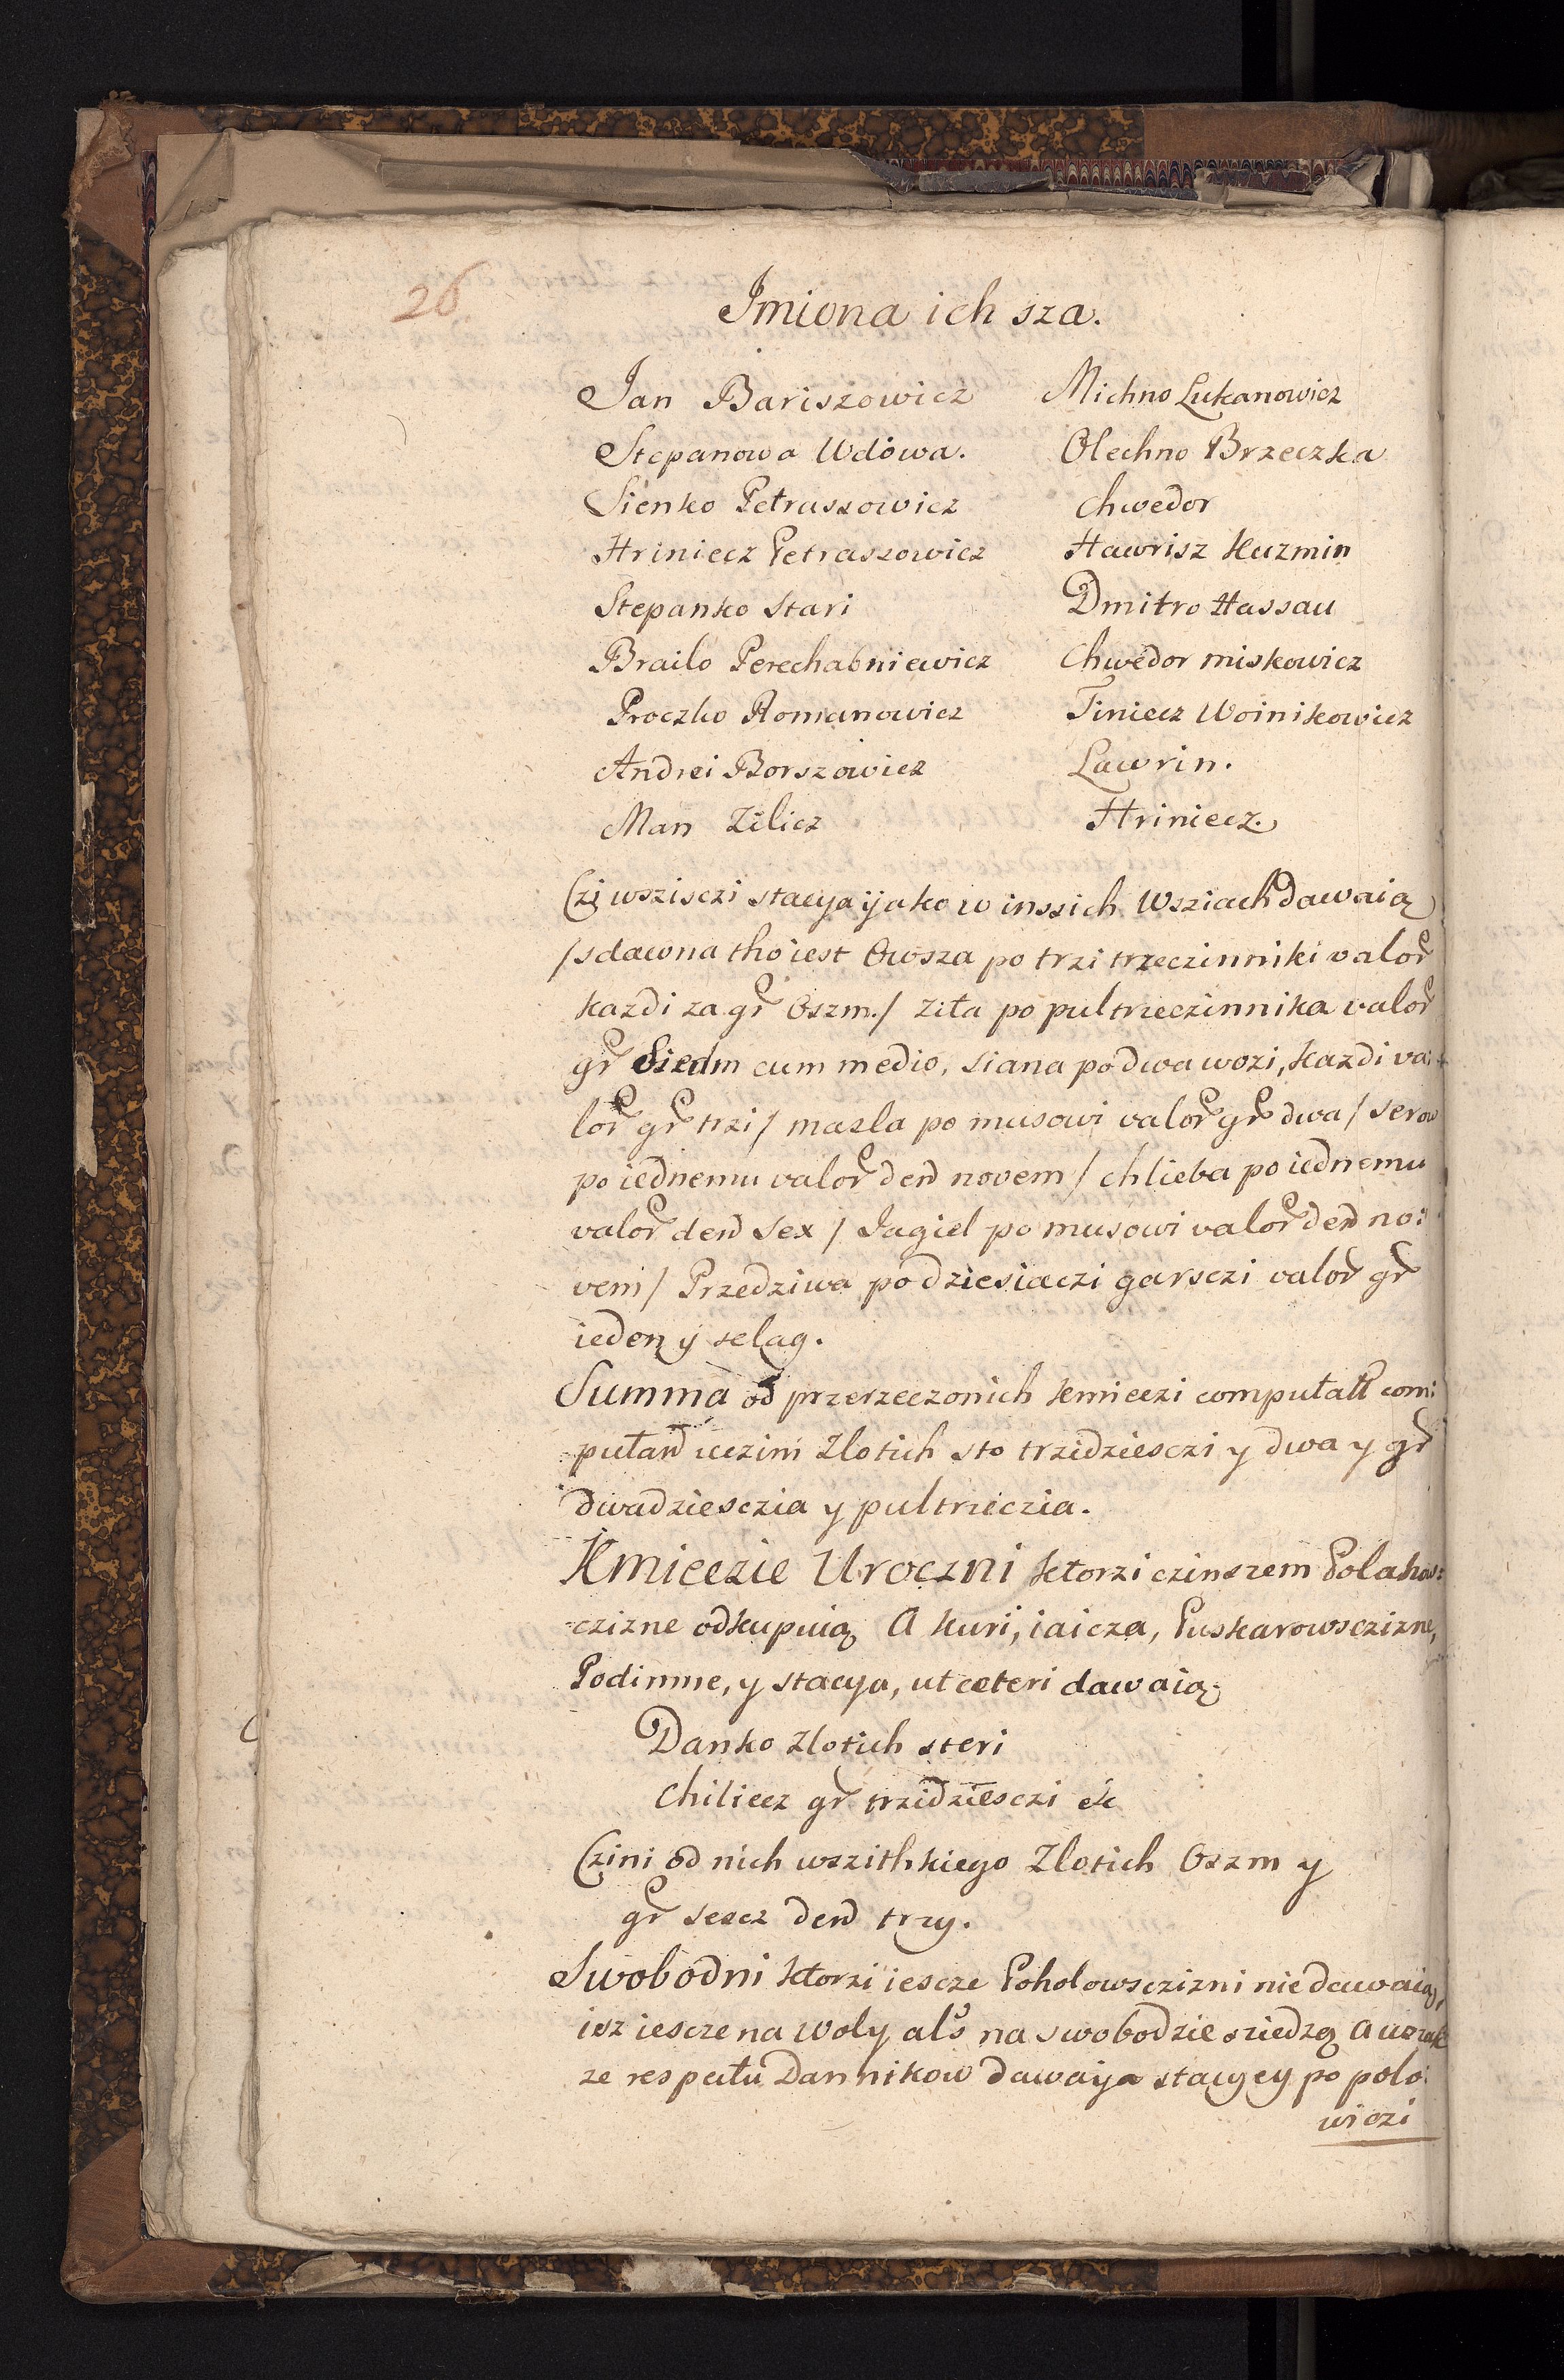 26
Imiona ich sza.
Jan Bariszowicz
Stepanowa Wdowa.
Sienko Petraszowicz
Hriniecz Petraszowicz
Stepanko Stari
Brailo Perechabniewicz
Proczko Romanowicz
Andrei Borszowicz
Man Zilicz
Michno Lukanowicz
Olechno Brzeczka
Chwedor
Hawrisz Kuzmin
Dmitro Hassau
Chwedor miskowicz
Tiniecz Woinikowicz
Lawrin.
Hriniecz.
Czi wszisczi stacya ijako w inssich Wsziach dawaią
/sdawna tho iest Owsza po trzi trzeczinniki valor
kazdi za gr Oszm./ Zita po pultrzeczinnika valor
gr Siedm cum medio, siana po dwa wozi, kazdi va:
lor gr trzi/ masla po musowi valor gr dwa/ serow
po iednemu valor den novem/ chlieba po iednemu
valor den sex/ Jagiel po musowi valor den no:
vem/ Przedziwa po dziesiaczi garsczi valor gr
ieden y selag.
Summa od przerzeczonich kmieczi computatt com:
putand uczini Zlotich sto trzidziesczi y dwa y gr
dwadziesczia y pultrzeczia.
Kmieczie Uroczni ktorzi czinszem Polahow:
czizne odkupuią A kuri, iaicza, Puskarowsczizne,
Podimne, y stacya, ut ceteri dawaią.
Danko Zlotich steri
Chiliecz gr trzidziesczi etc
Czini od nich wszithkiego Zlotich Oszm y
gr sescz den trzy.
Swobodni ktorzi iescze Poholowsczizni nie dawaią,
isz iescze na Woly als na swobodzie siedzą A wszak
ze respectu Dannikow dawaya stacyey po polo:
wiczi